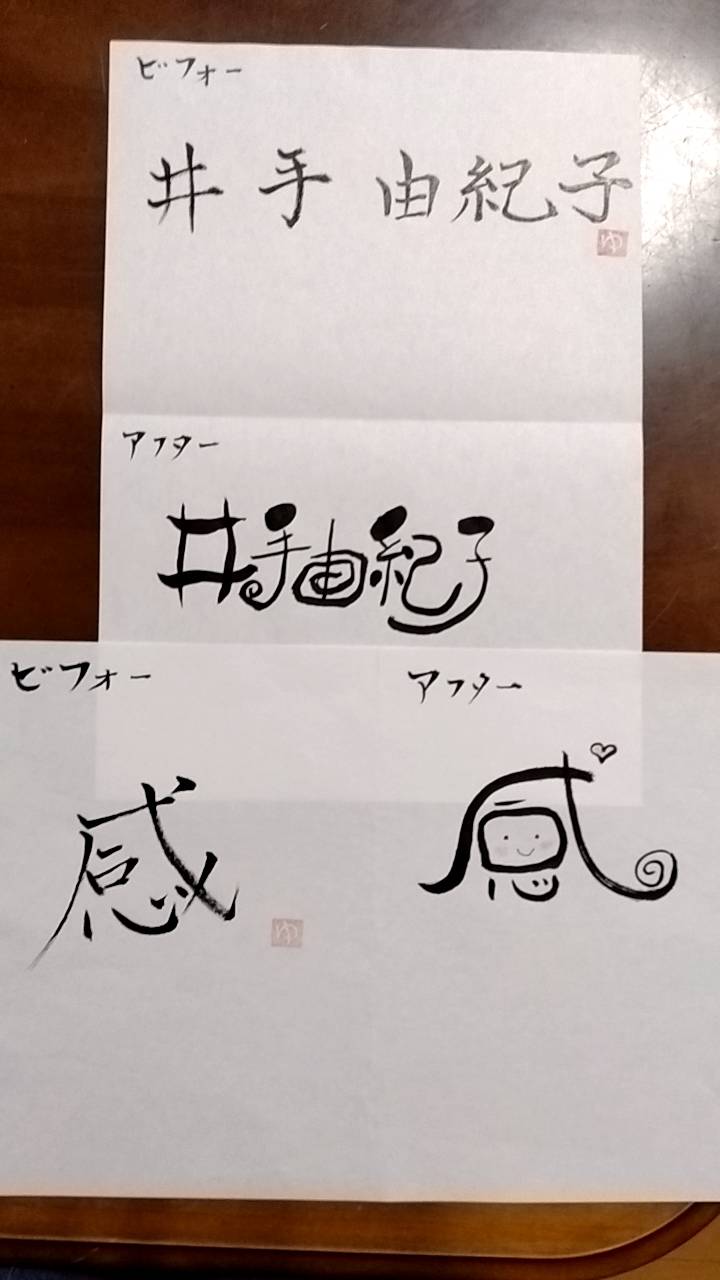 ビフォー
井手 由紀子
ゆ
アフター
井手由紀子
ビフォー
感
ゆ
アフター
感